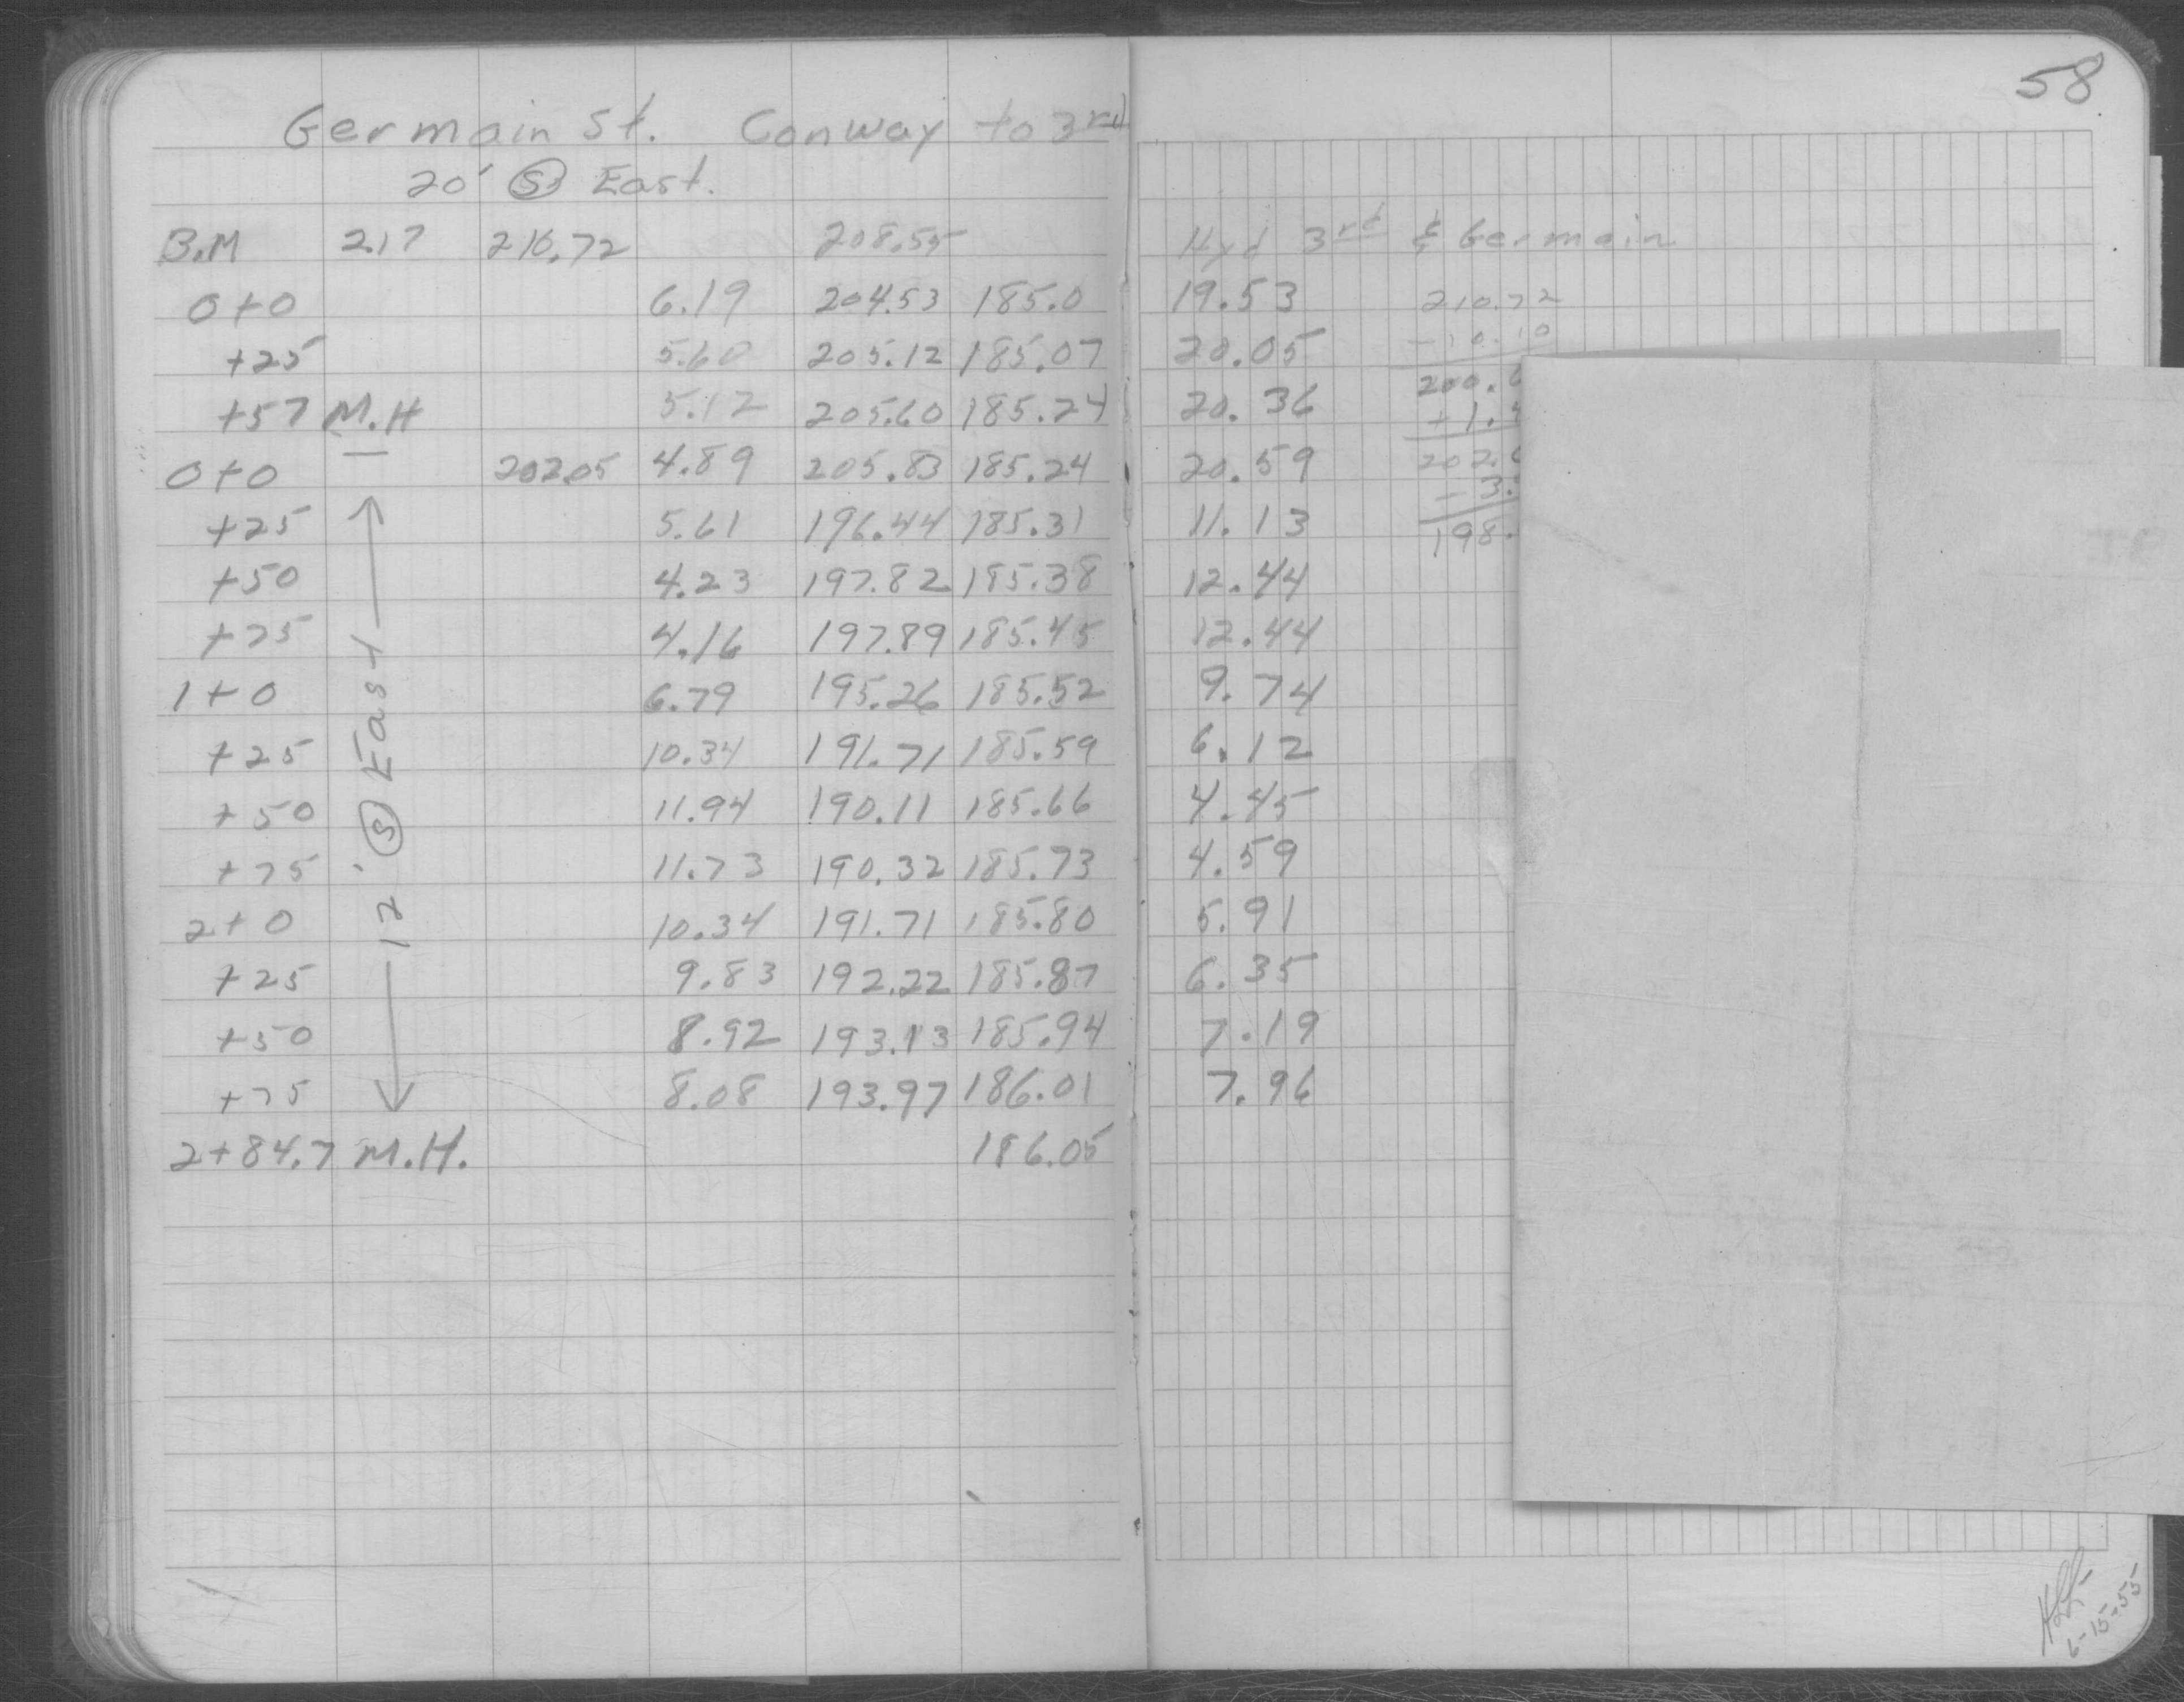 58
Germain St. Conway to 3rd
20' Ⓢ East.
B.M 2.17 210.72 208.55 Hyd 3rd & Germain
0+0 6.19 204.53 185.0 19.53 210.72
+25 5.60 205.12 185.07 20.05 -10.10
+57 M.H 5.12 205.60 185.24 20.36 200.6
+1.
0+0 202.05 4.89 205.83 185.24 20.59 202.0
-3.
+25 5.61 196.44 185.31 11.13 198.
+50 4.23 197.82 185.38 12.44
+75 4.16 197.89 185.45 12.44
1+0 6.79 195.26 185.52 9.74
+25 10.34 191.71 185.59 6.12
+50 11.94 190.11 185.66 4.45
+75 11.73 190.32 185.73 4.59
2+0 10.34 191.71 185.80 5.91
+25 9.83 192.22 185.87 6.35
+50 8.92 193.13 185.94 7.19
+75 8.08 193.97 186.01 7.96
2+84.7 M.H. 186.05
← 12' Ⓢ East →
6-15-55